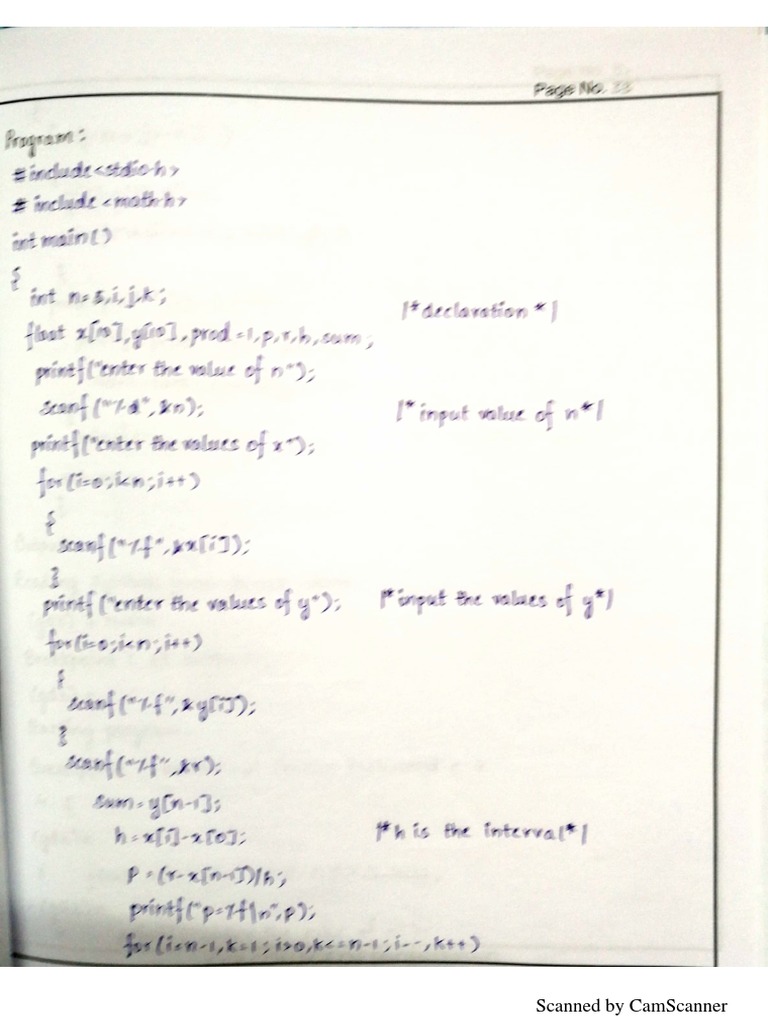 Page No. 38
Program:
#include<stdio.h>
# include <math.h>
int main()
{
int n=5,i,j,k;
/*declaration */
float x[10],y[10],prod=1,p,r,h,sum;
printf("enter the value of n");
scanf ("%d",&n);
/* input value of n*/
printf("enter the values of x");
for(i=0;i<n;i++)
{
scanf("%f",&x[i]);
}
printf("enter the values of y");
/*input the values of y*/
for(i=0;i<n;i++)
{
scanf("%f",&y[i]);
}
scanf("%f",&r);
sum=y[n-1];
h=x[1]-x[0];
/*h is the interval*/
p=(r-x[n-1])/h;
printf("p=%f\n",p);
for(i=n-1,k=1;i>0,k<=n-1;i--,k++)
Scanned by CamScanner